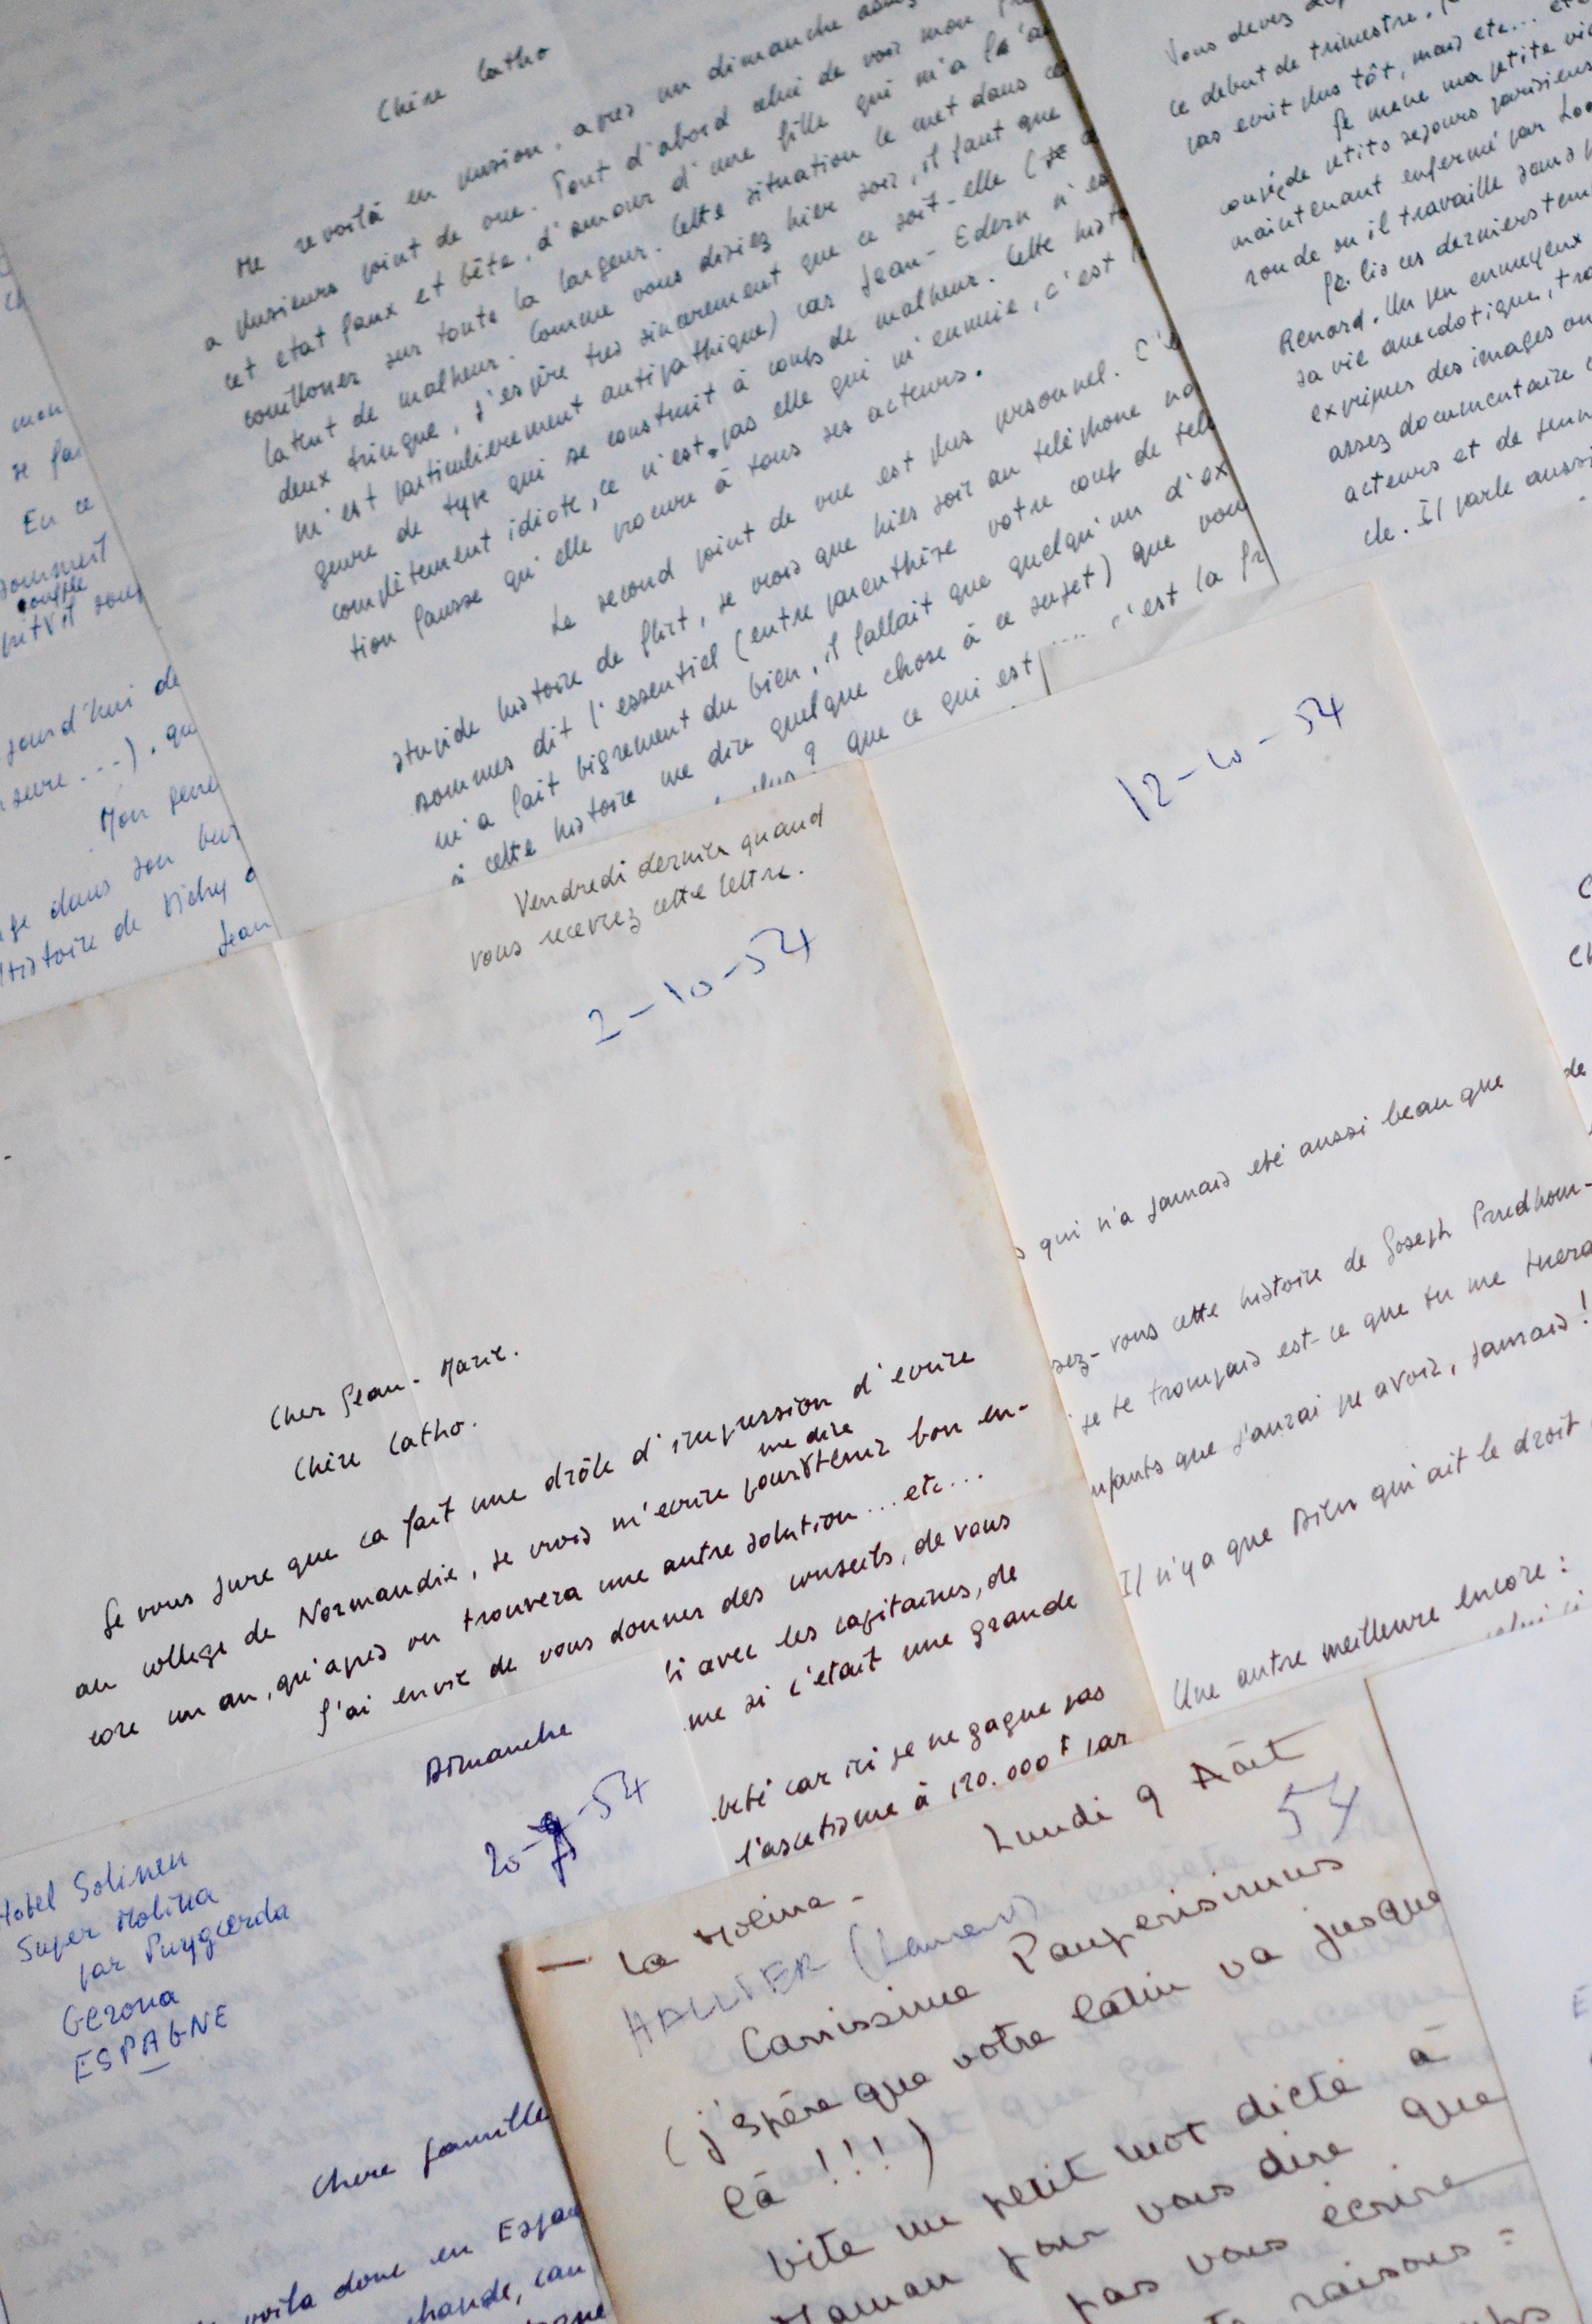 Chère Catho
Me revoilà en pension, après un dimanche
a plusieurs point de vue. Tout d'abord celui de voir mon
cet etat faux et bête, d'amour d'une fille qui m'a l'a
couillonner sur toute la largeur. Cette situation le met dans
latent de malheur. Comme vous disiez hier soir, il faut que
deux trinque, j'espère tres sincerement que ce soit-elle (
m'est particulierement antipathique) car Jean-Edern n'es
genre de type qui se construit à coups de malheur. Cette histo
complètement idiote, ce n'est pas elle qui m'ennuie, c'est
tion fausse qu'elle procure à tous ses acteurs.
Le second point de vue est plus personnel. C'e
stupide histoire de flirt, je crois que hier soir au teléphone no
sommes dit l'essentiel (entre parenthèse votre coup de tele
m'a fait bigrement du bien, il fallait que quelqu'un d'ex
à cette histoire me dire quelque chose à ce sujet) que vou
plus ? que ce qui est c'est la fr
Vous devez
ce debut de trimestre.
pas ecrit plus tôt, mais etc... etc
Je mene ma petite vie
coupé, de petits sejours parisiens
maintenant enfermé par
ronde ou il travaille sans
Je lis ces derniers tem
Renard. Un peu ennuyeux
sa vie anecdotique,
exprimer des images ou
assez documentaire
acteurs et de
cle. Il parle aussi
mon
se fai
En ce
comment
souffle
jourd'hui de
Mon
ge dans son bur
histoire de Vichy
Jean
Vendredi dernier quand
vous recevrez cette lettre.
2-10-54
Cher Jean-Marie.
Chère Catho.
Je vous jure que ca fait une drôle d'impression d'ecrire
me dire
au college de Normandie, je crois m'ecrire pour tenir bon en-
core un an, qu'apres on trouvera une autre solution...etc...
J'ai envie de vous donner des conseils, de vous
12-10-54
qui n'a jamais eté aussi beau que
sez-vous cette histoire de Joseph Prudhom-
je te trompais est-ce que tu me tuera
nfants que j'aurai pu avoir, jamais!
Il n'y a que Dieu qui ait le droit
Une autre meilleure encore :
i avec les capitaines, de
me si c'etait une grande
beté car ici je ne gagne pas
l'ascetisme à 120.000 f par
Dimanche
20-9-54
Hotel Solineu
Super Molina
par Puygcerda
Gerona
ESPAGNE
Chere famille
voila donc en Espa
chaude, car
Lundi 9 Août
54
— La Molina -
HALLIER (Laurent)
Carissime Pauperisimus
(j'espère que votre latin va jusque
là !!!)
Vite un petit mot dicté à
Maman pour vous dire que
pas vous écrire
raisons :